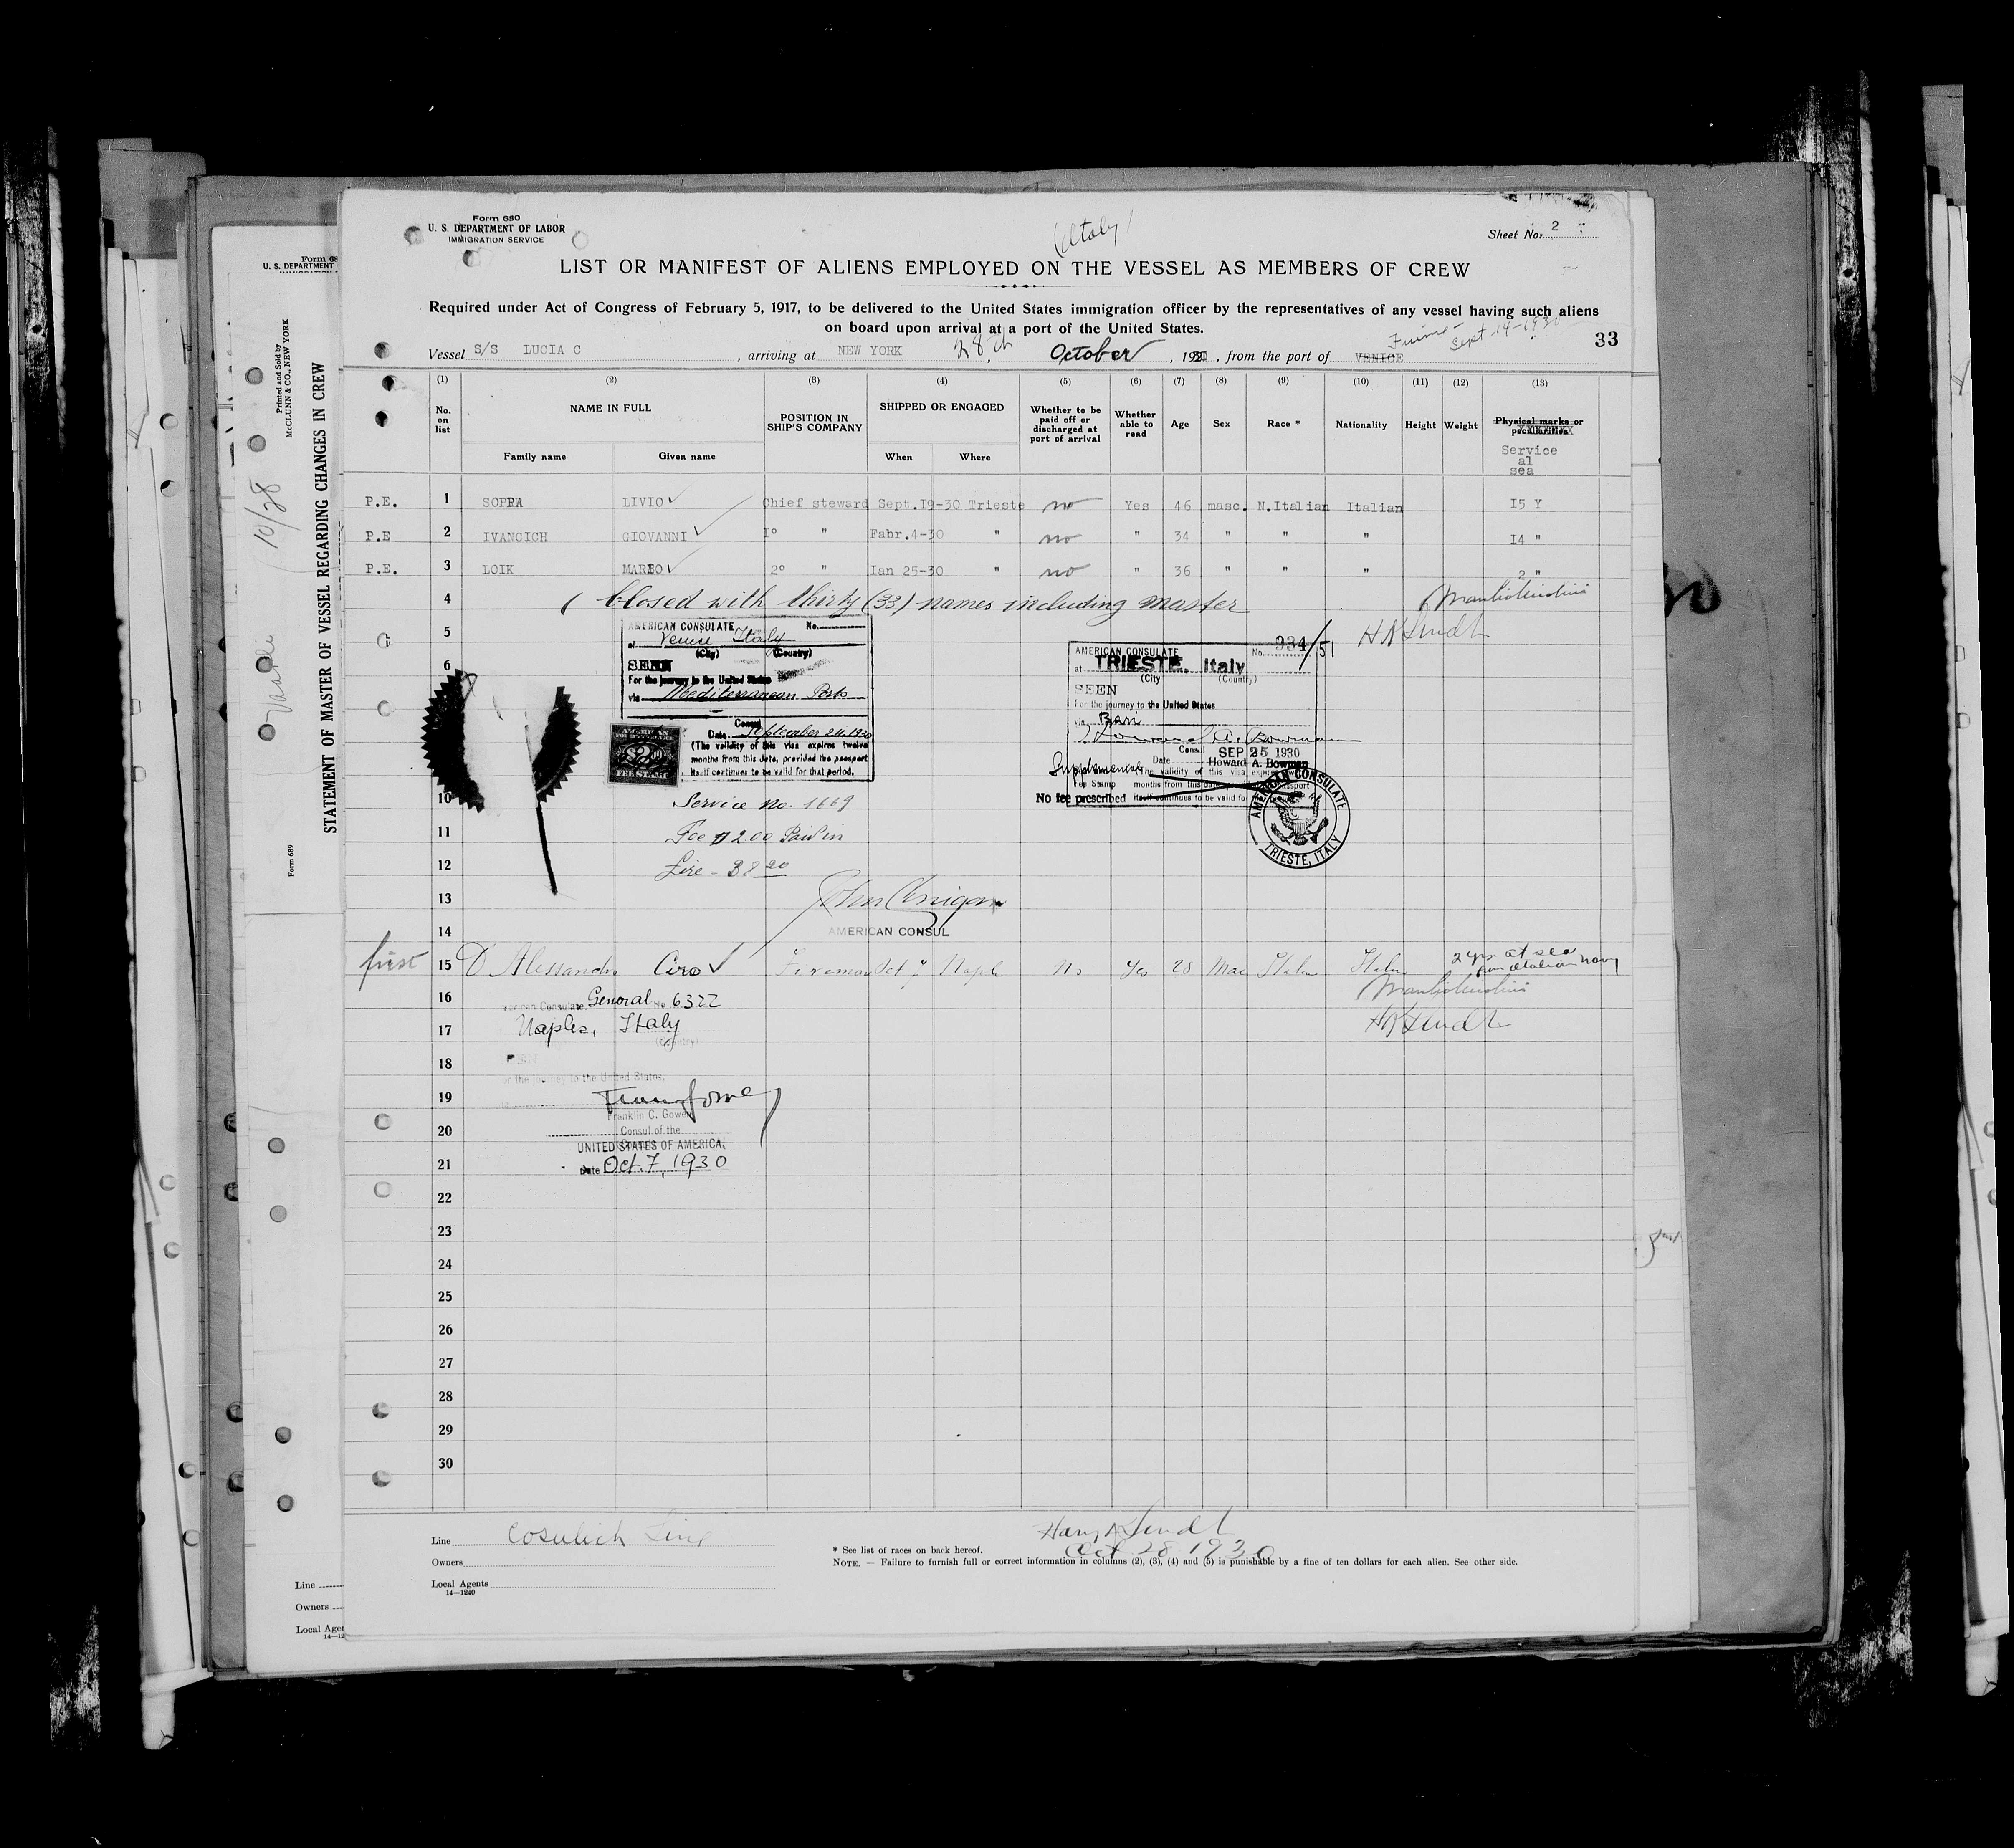 Form 680
U. S. DEPARTMENT OF LABOR
IMMIGRATION SERVICE
Italy
Sheet No. 2
LIST OR MANIFEST OF ALIENS EMPLOYED ON THE VESSEL AS MEMBERS OF CREW
Required under Act of Congress of February 5, 1917, to be delivered to the United States immigration officer by the representatives of any vessel having such aliens
on board upon arrival at a port of the United States.
Fiume - Sept 19-1930
33
Vessel S/S LUCIA C, arriving at NEW YORK 28th October, 1930, from the port of VENICE
(1) (2) (3) (4) (5) (6) (7) (8) (9) (10) (11) (12) (13)
No. on list NAME IN FULL POSITION IN SHIP'S COMPANY SHIPPED OR ENGAGED Whether to be paid off or discharged at port of arrival Whether able to read Age Sex Race * Nationality Height Weight Physical marks or peculiarities
Family name Given name When Where Service al sea
P.E. 1 SOPRA LIVIO Chief steward Sept.19-30 Trieste no Yes 46 masc. N.Italian Italian I5 Y
P.E 2 IVANCICH GIOVANNI I° " Fabr.4-30 " no " 34 " " " I4 "
P.E. 3 LOIK MARIO 2° " Ian 25-30 " no " 36 " " " 2 "
4 Closed with thirty (33) names including master
5
H N Lindt
AMERICAN CONSULATE No.
at Venice Italy
(City) (Country)
6
SEEN
For the journey to the United States
via Mediterranean Ports
Consul
Date September 24 1930
(The validity of this visa expires twelve
months from this date, provided the passport
itself continues to be valid for that period.
AMERICAN
$2.00
FEE STAMP
AMERICAN CONSULATE No. 934/51
at TRIESTE Italy
(City (Country)
SEEN
For the journey to the United States
via Bari
Howard A. Bowman
Consul SEP 25 1930
Date Howard A. Bowman
Supplemental (The validity of this visa expires
Fee Stamp months from this date passport
No fee prescribed itself continues to be valid for
AMERICAN CONSULATE
TRIESTE, ITALY
10 Service No. 1669
11 Fee $2.00 Paid in
12 Lire - 38 20
13 John Corrigan
14 AMERICAN CONSUL
first 15 D'Alessandro Ciro Fireman Oct 7 Naple No Yes 28 Mas Italian Italian 2 yrs at sea
Italian navy
16 American Consulate General No. 6322
17 Naples, Italy
(Country)
H N Lindt
18
For the journey to the United States,
19
Franklin C. Gowen
20 Consul of the
UNITED STATES OF AMERICA.
21 Date Oct. 7, 1930
22
23
24
25
26
27
28
29
30
Line Cosulich Line
Owners
Local Agents
14—1240
Harry N Lindt
Oct 28 1930
* See list of races on back hereof.
NOTE. — Failure to furnish full or correct information in columns (2), (3), (4) and (5) is punishable by a fine of ten dollars for each alien. See other side.
Form 68
U. S. DEPARTMENT
Printed and Sold by
McCLUNN & CO., NEW YORK
STATEMENT OF MASTER OF VESSEL REGARDING CHANGES IN CREW
10/28
Form 689
Line
Owners
Local Agen
14—12